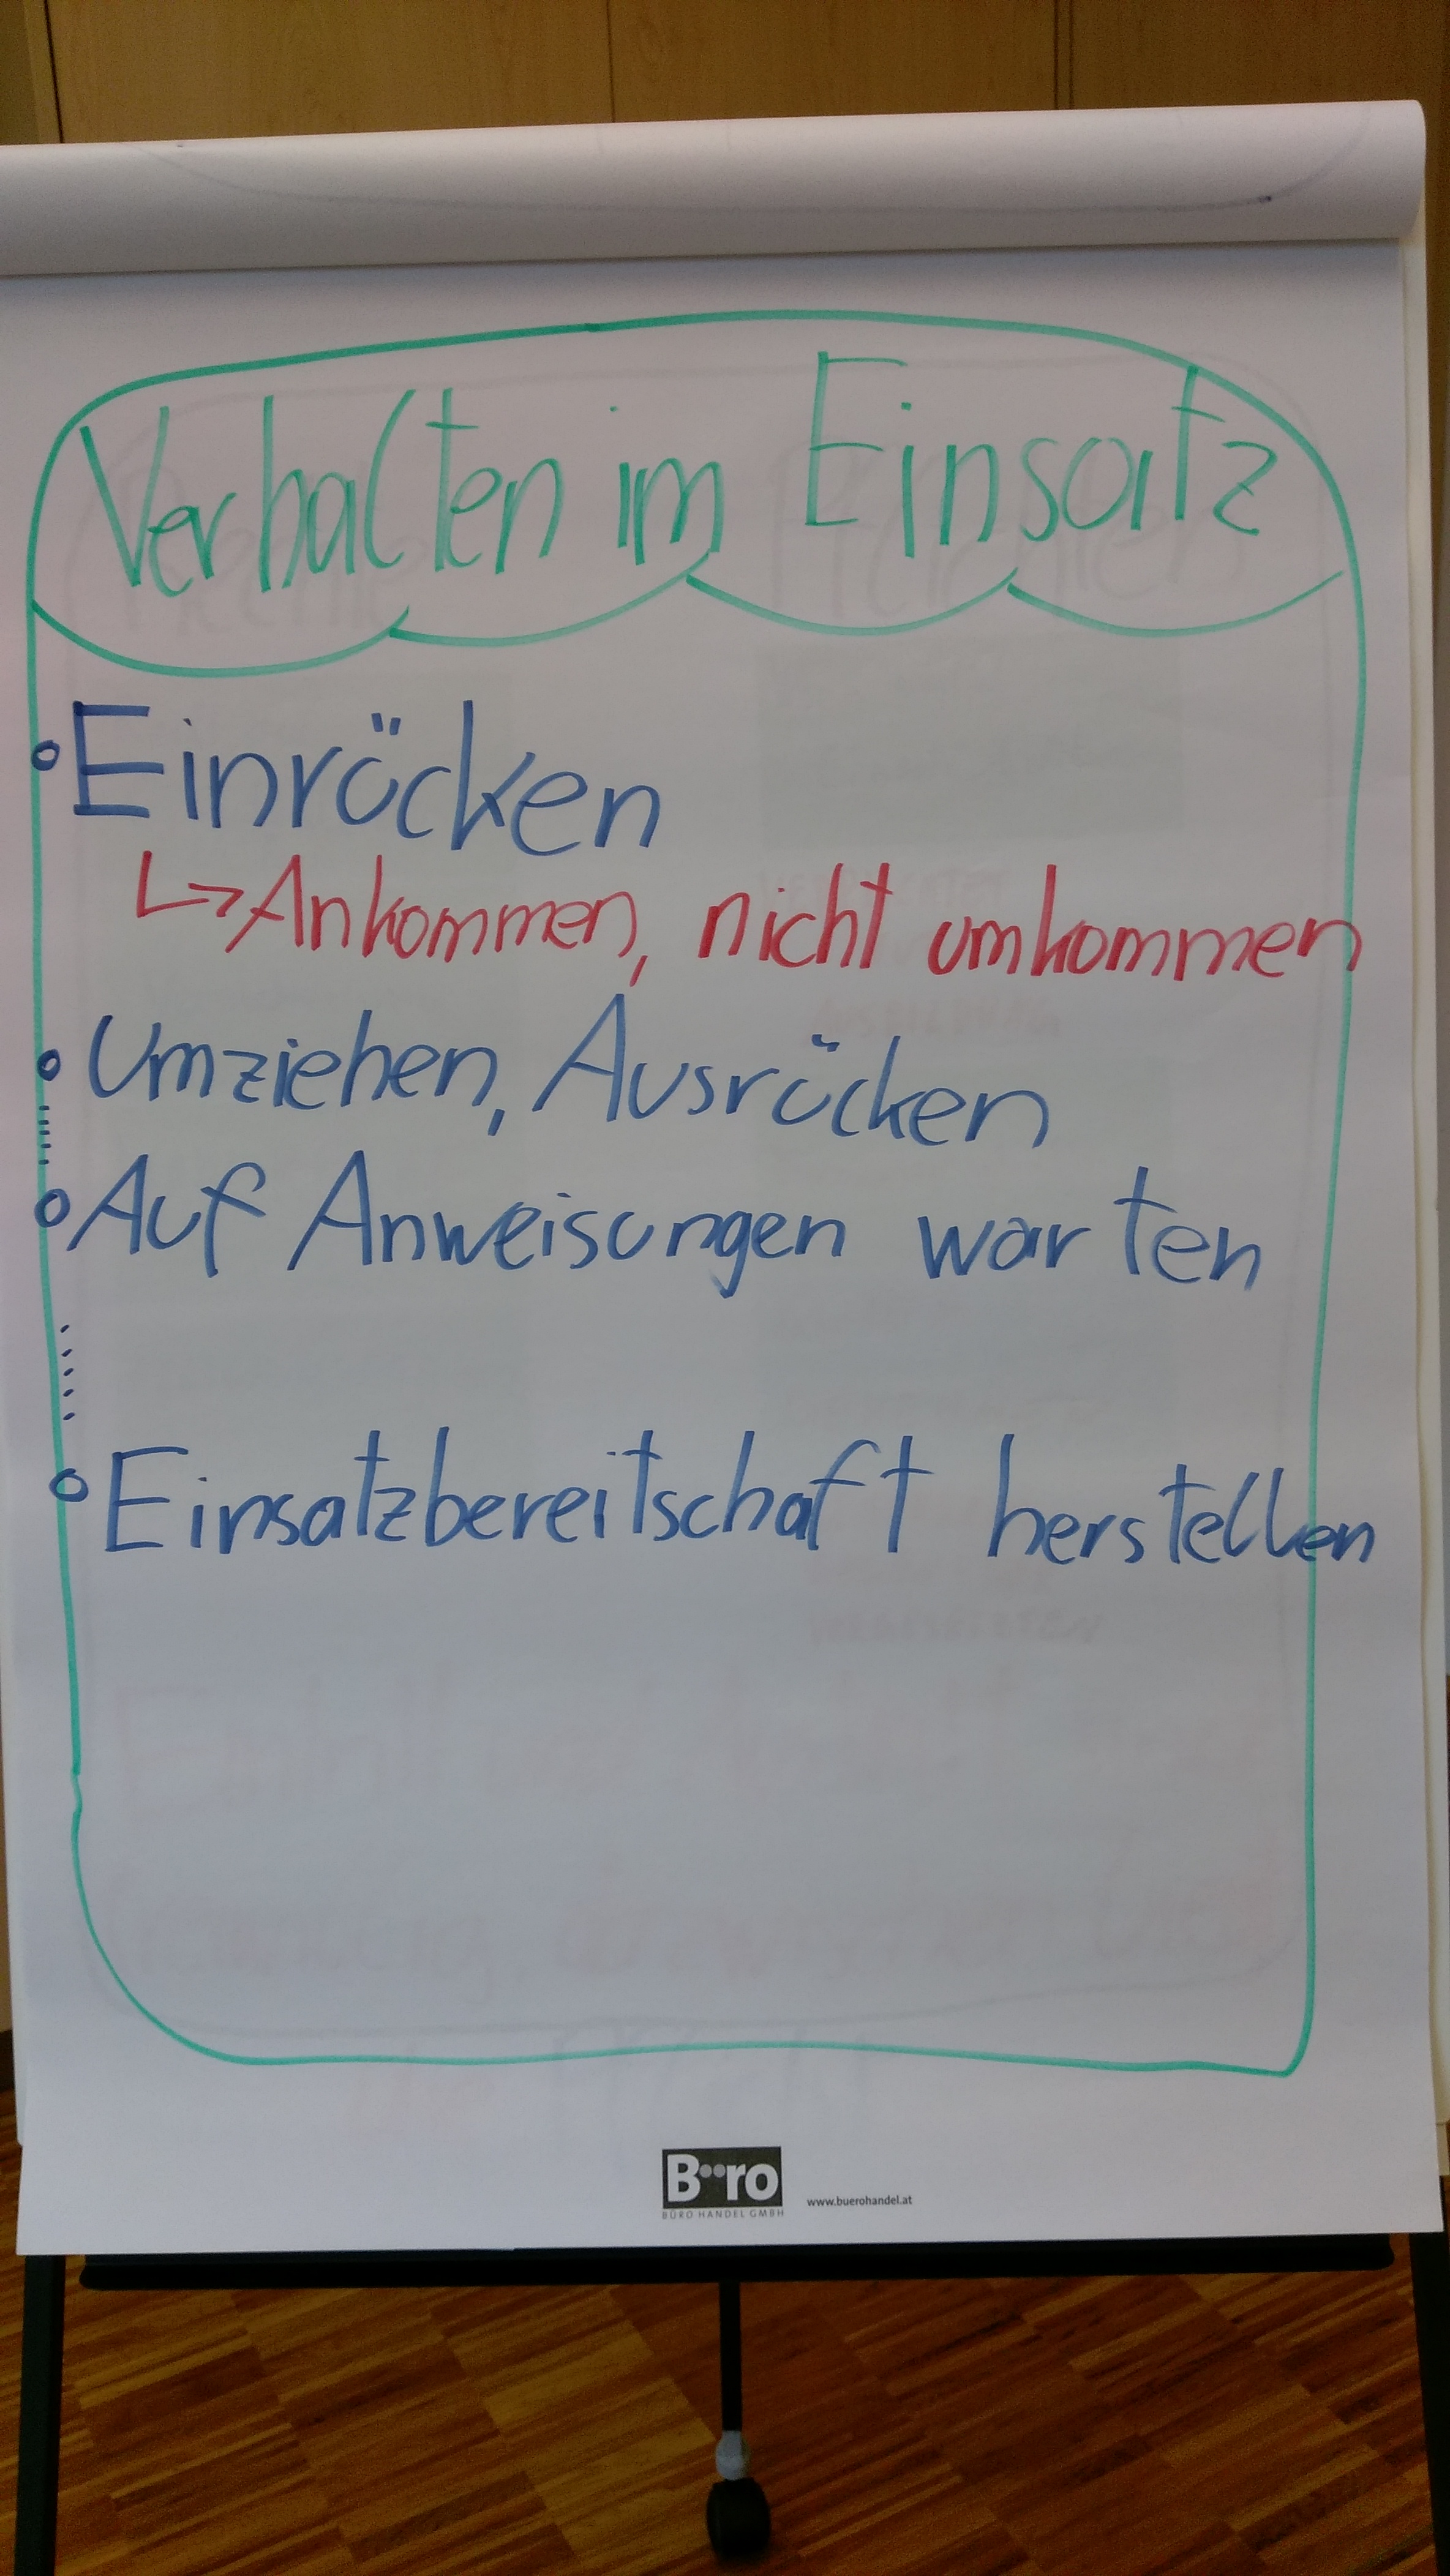 Verhalten im Einsatz
Einrücken
↳ Ankommen, nicht umkommen
Umziehen, Ausrücken
Auf Anweisungen warten
Einsatzbereitschaft herstellen
Büro
BÜRO HANDEL GMBH
www.buerohandel.at